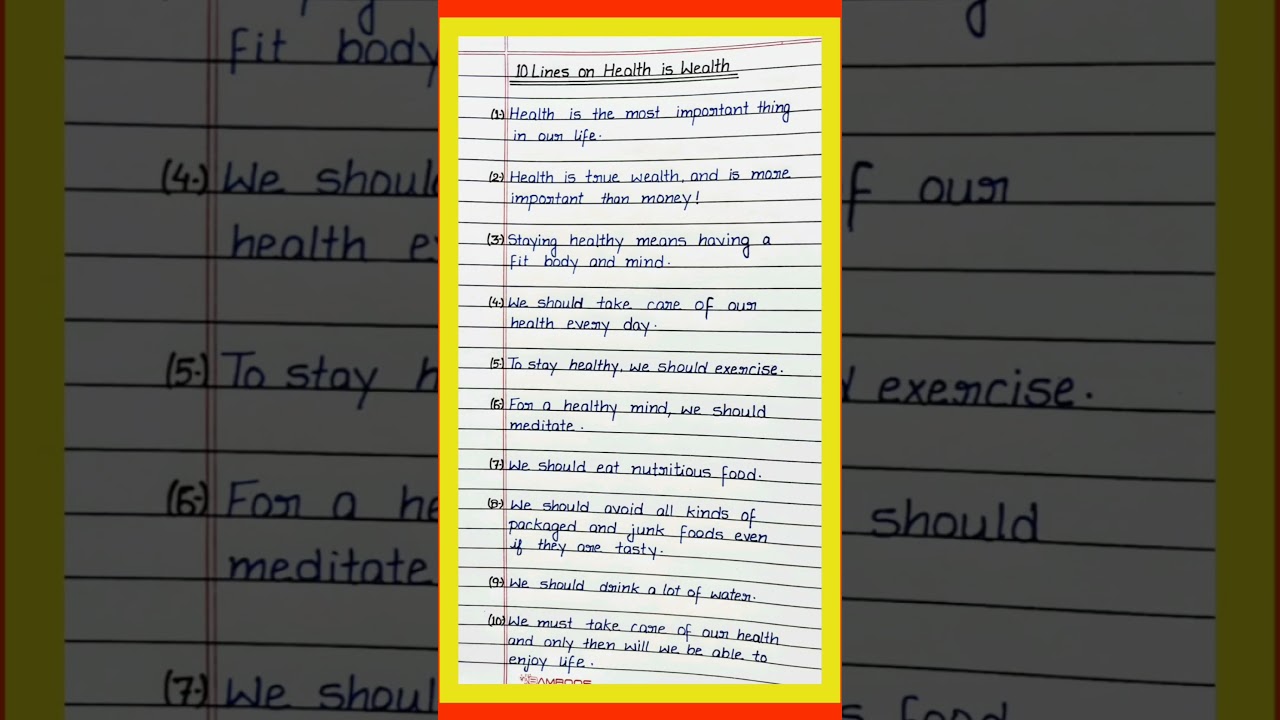 10 Lines on Health is Wealth
(1.) Health is the most important thing
in our life.
(2.) Health is true wealth, and is more
important than money!
(3.) Staying healthy means having a
fit body and mind.
(4.) We should take care of our
health every day.
(5.) To stay healthy, we should exercise.
(6.) For a healthy mind, we should
meditate.
(7.) We should eat nutritious food.
(8.) We should avoid all kinds of
packaged and junk foods even
if they are tasty.
(9.) We should drink a lot of water.
(10.) We must take care of our health
and only then will we be able to
enjoy life.
fit body
(4.) We
of our
health
(5.) To stay
exercise.
(6.) For a
should
meditate
(7.) We